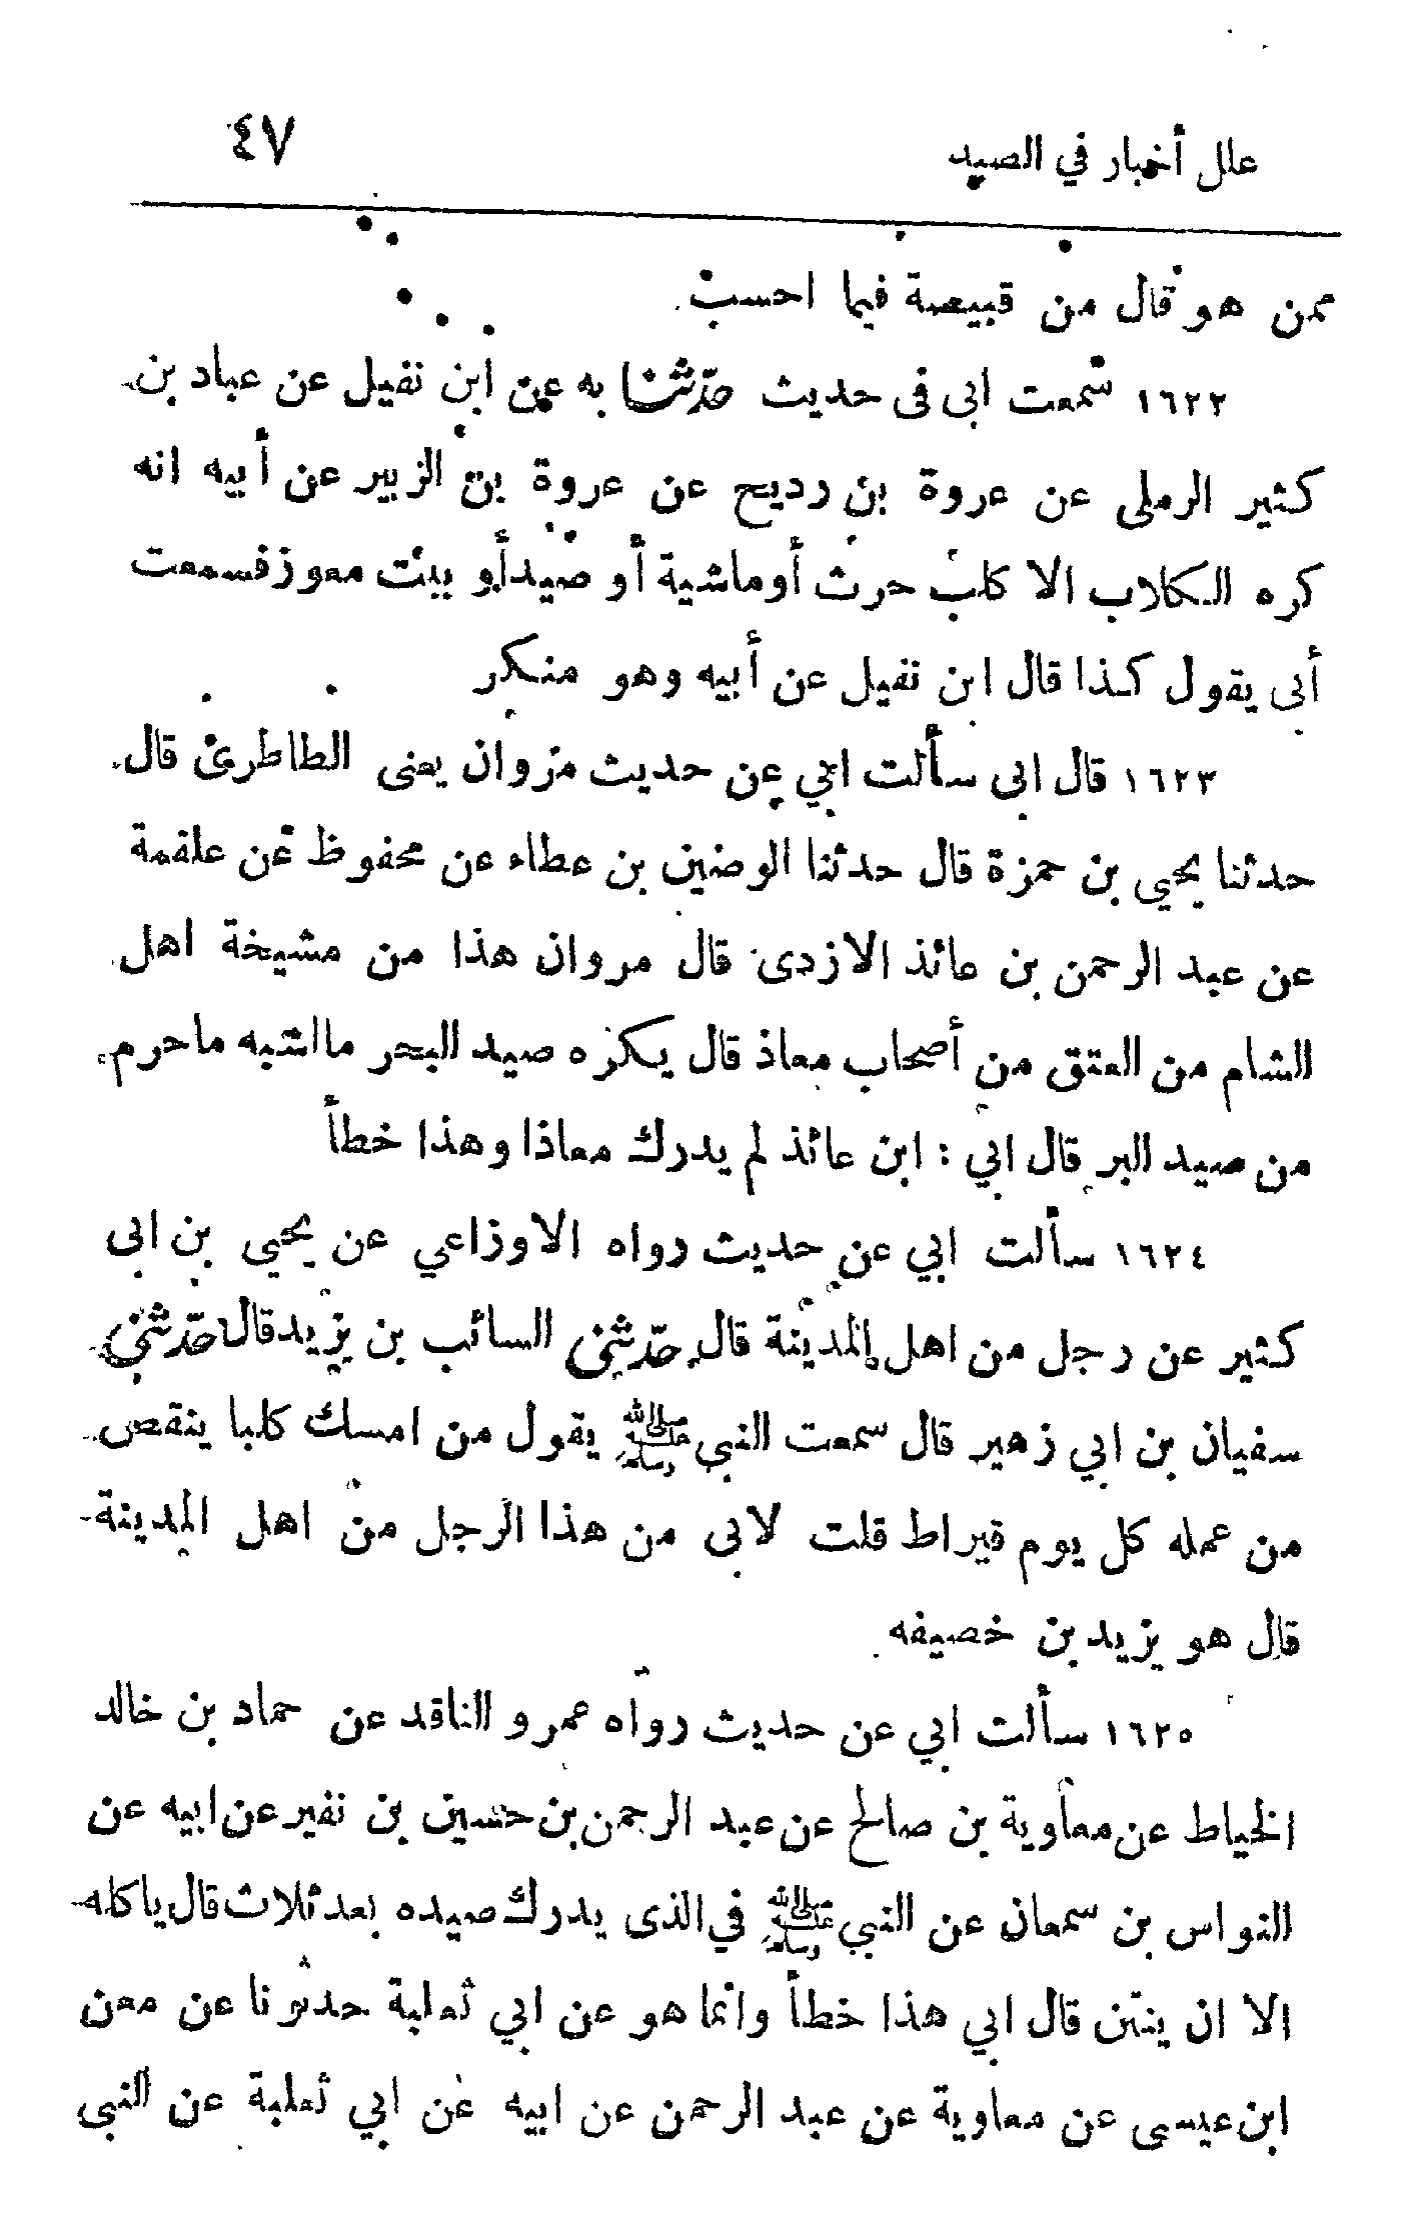 علل أخبار في الصيد ٤٧
ممن هو قال من قبيصة فيما احسب
١٦٢٢ سمعت ابى فى حديث حدّثنا به عن ابن نفيل عن عباد بن
كثير الرملى عن عروة بن رديح عن عروة بن الزبير عن أبيه انه
كره الكلاب الا كلب حرث أوماشية أو صيدأو بيت معوز فسمعت
أبى يقول كذا قال ابن نفيل عن أبيه وهو منكر
١٦٢٣ قال ابى سألت ابي عن حديث مروان يعنى الطاطرى قال
حدثنا يحيى بن حمزة قال حدثنا الوضين بن عطاء عن محفوظ عن علقمة
عن عبد الرحمن بن عائذ الازدى قال مروان هذا من مشيخة اهل
الشام من العتق من أصحاب معاذ قال يكره صيد البحر مااشبه ماحرم
من صيد البر قال ابي : ابن عائذ لم يدرك معاذا وهذا خطأ
١٦٢٤ سألت ابي عن حديث رواه الاوزاعي عن يحيى بن ابى
كثير عن رجل من اهل المدينة قال حدّثني السائب بن يزيد قال حدّثني
سفيان بن ابي زهير قال سمعت النبي ﷺ يقول من امسك كلبا ينقص
من عمله كل يوم قيراط قلت لابى من هذا الرجل من اهل المدينة
قال هو يزيد بن خصيفه
١٦٢٥ سألت ابي عن حديث رواه عمرو الناقد عن حماد بن خالد
الخياط عن معاوية بن صالح عن عبد الرحمن بن حسين بن نفير عن ابيه عن
النواس بن سمعان عن النبي ﷺ في الذى يدرك صيده بعد ثلاث قال ياكله
الا ان ينتن قال ابي هذا خطأ وانما هو عن ابي ثعلبة حدثونا عن معن
ابن عيسى عن معاوية عن عبد الرحمن عن ابيه عن ابي ثعلبة عن النبى